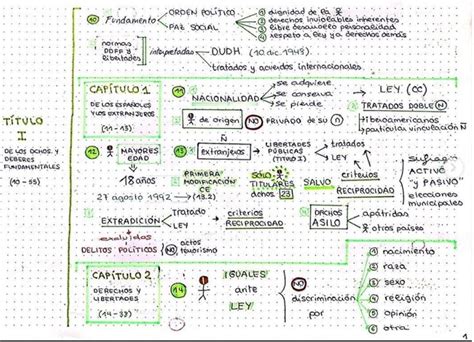 TÍTULO
I
DE LOS DCHOS. Y
DEBERES
FUNDAMENTALES
(10 - 55)
10 Fundamento
ORDEN POLÍTICO
PAZ SOCIAL
1 dignidad de la
2 derechos inviolables inherentes
3 libre desarrollo personalidad
4 respeto a ley y a derechos demás
normas
DDFF y
libertades
interpretadas
DUDH (10 dic. 1948)
tratados y acuerdos internacionales
CAPÍTULO 1
DE LOS ESPAÑOLES
Y LOS EXTRANJEROS
(11 - 13)
11 NACIONALIDAD
se adquiere
se conserva
se pierde
LEY (CC)
2 de origen NO PRIVADO de su n
3 TRATADOS DOBLE N
iberoamericanos
particular vinculación Ñ
12 MAYORES
EDAD
18 años
13 extranjeros
LIBERTADES
PÚBLICAS
(TÍTULO I)
tratados
LEY
2 PRIMERA
MODIFICACIÓN
CE
27 agosto 1992 → (13.2)
SÓLO
TITULARES
dchos. 23
SALVO
criterios
RECIPROCIDAD
sufragio
ACTIVO
y "PASIVO"
elecciones
municipales
EXTRADICIÓN
Tratado
LEY
criterios
RECIPROCIDAD
excluidos
DELITOS POLÍTICOS
NO actos
terrorismo
4 DCHOS
ASILO
apátridas
otros países
CAPÍTULO 2
DERECHOS Y
LIBERTADES
(14 - 38)
14 IGUALES
ante
LEY
NO
discriminación
por
1 nacimiento
2 raza
3 sexo
4 religión
5 opinión
6 otra
1